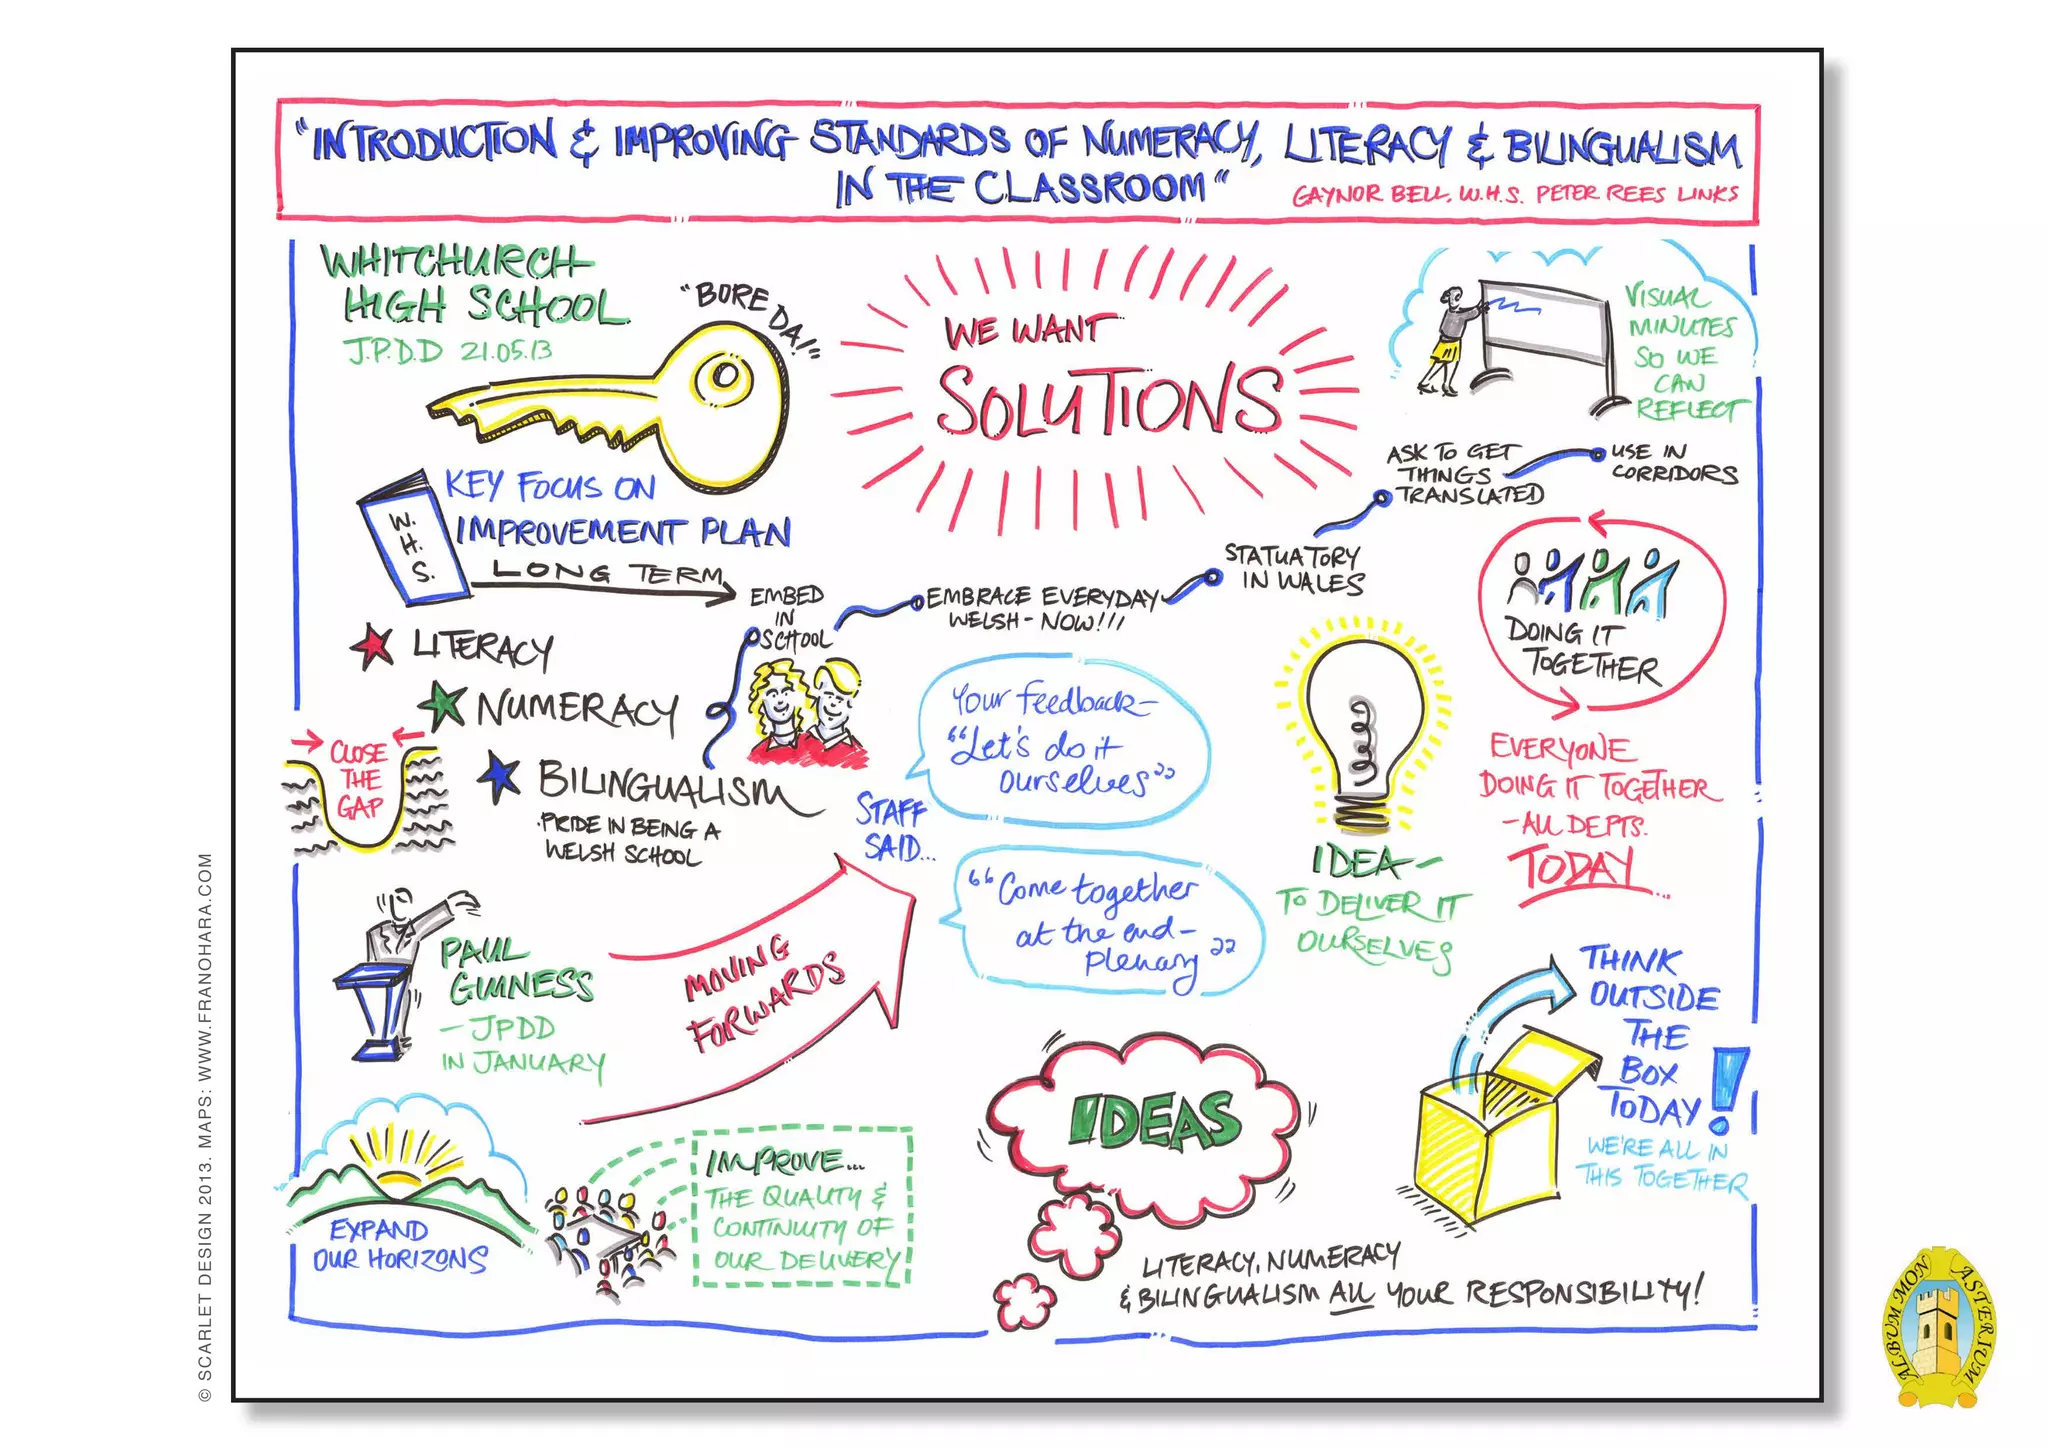 "INTRODUCTION & IMPROVING STANDARDS OF NUMERACY, LITERACY & BILINGUALISM
IN THE CLASSROOM"
GAYNOR BELL, W.H.S. PETER REES LINKS
WHITCHURCH
HIGH SCHOOL
J.P.D.D 21.05.13
"BORE DA!"
WE WANT
SOLUTIONS
VISUAL
MINUTES
SO WE
CAN
REFLECT
W.
H.
S.
KEY FOCUS ON
IMPROVEMENT PLAN
LONG TERM
LITERACY
NUMERACY
BILINGUALISM
·PRIDE IN BEING A
WELSH SCHOOL
EMBED
IN
SCHOOL
EMBRACE EVERYDAY
WELSH - NOW!!!
STATUATORY
IN WALES
ASK TO GET
THINGS
TRANSLATED
USE IN
CORRIDORS
DOING IT
TOGETHER
EVERYONE
DOING IT TOGETHER
- ALL DEPTS.
TODAY...
CLOSE
THE
GAP
STAFF
SAID...
Your feedback -
"Let's do it
ourselves"
"Come together
at the end -
plenary"
IDEA -
TO DELIVER IT
OURSELVES
PAUL
GUINNESS
- JPDD
IN JANUARY
MOVING
FORWARDS
THINK
OUTSIDE
THE
BOX
TODAY!
WE'RE ALL IN
THIS TOGETHER
EXPAND
OUR HORIZONS
IMPROVE...
THE QUALITY &
CONTINUITY OF
OUR DELIVERY
IDEAS
LITERACY, NUMERACY
& BILINGUALISM ALL YOUR RESPONSIBILITY!
© SCARLET DESIGN 2013. MAPS: WWW.FRANOHARA.COM
ALBUM MONASTERIUM